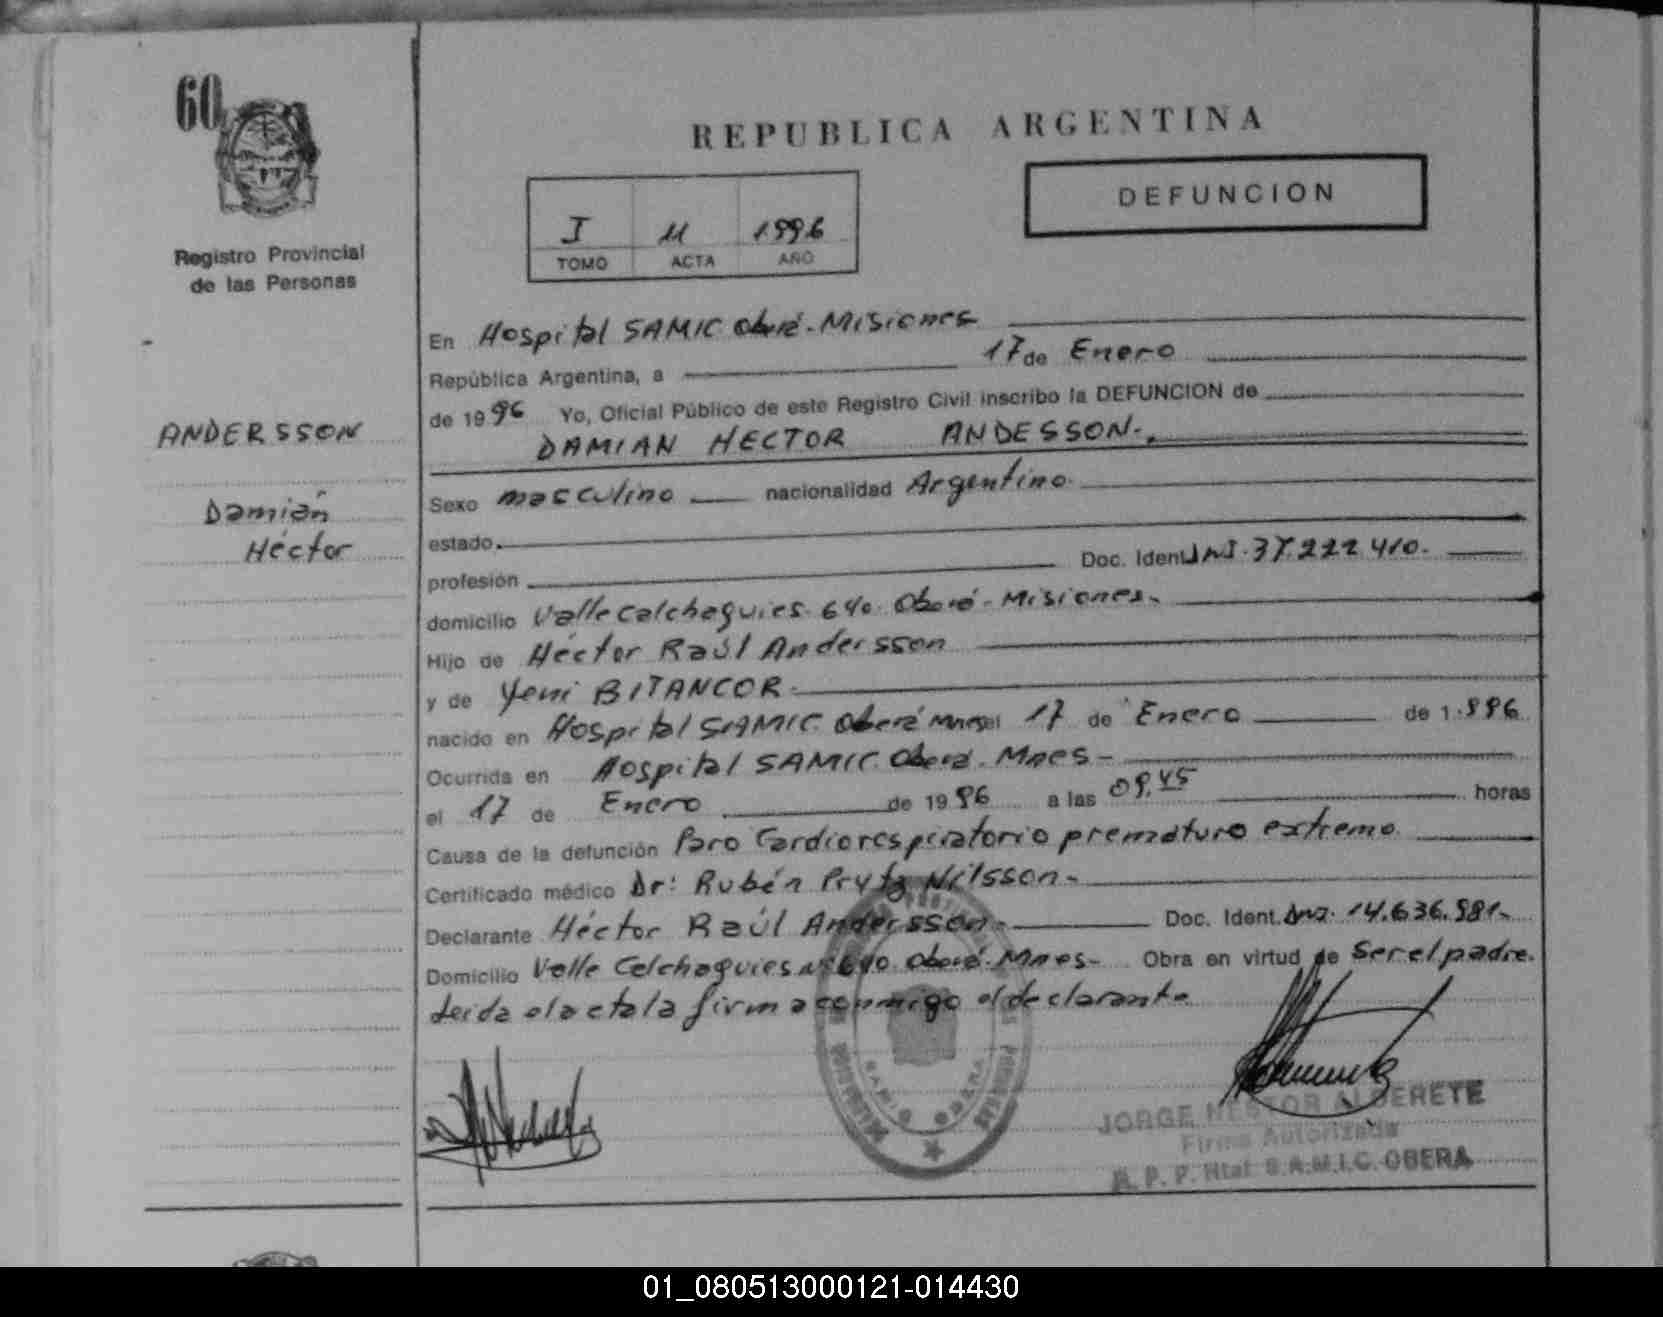 60
REPUBLICA ARGENTINA
DEFUNCION
I 11 1996
TOMO ACTA AÑO
Registro Provincial
de las Personas
ANDERSSON
Damián
Héctor
En Hospital SAMIC Oberá-Misiones
República Argentina, a 17 de Enero
de 1996 Yo, Oficial Público de este Registro Civil inscribo la DEFUNCION de
DAMIAN HECTOR ANDESSON.
Sexo masculino nacionalidad Argentino
estado
profesión Doc. Ident. 37.222.410.
domicilio Valle Calchaquies 640 Oberá-Misiones-
Hijo de Héctor Raúl Andersson
y de Yeni BITANCOR
nacido en Hospital SAMIC Oberá Mnes el 17 de Enero de 1.996
Ocurrida en Hospital SAMIC Oberá. Mnes-
el 17 de Enero de 1996 a las 09,45 horas
Causa de la defunción Paro Cardiorespiratorio prematuro extremo.
Certificado médico Dr: Rubén Prytz Nilsson-
Declarante Héctor Raúl Andersson- Doc. Ident. DNI. 14.636.981-
Domicilio Valle Calchaquies nº 640 Oberá-Mnes- Obra en virtud de Ser el padre.
Leida el acta la firma conmigo el declarante
JORGE NESTOR ALDERETE
Firma Autorizada
S.A.M.I.C. OBERA
01_080513000121-014430